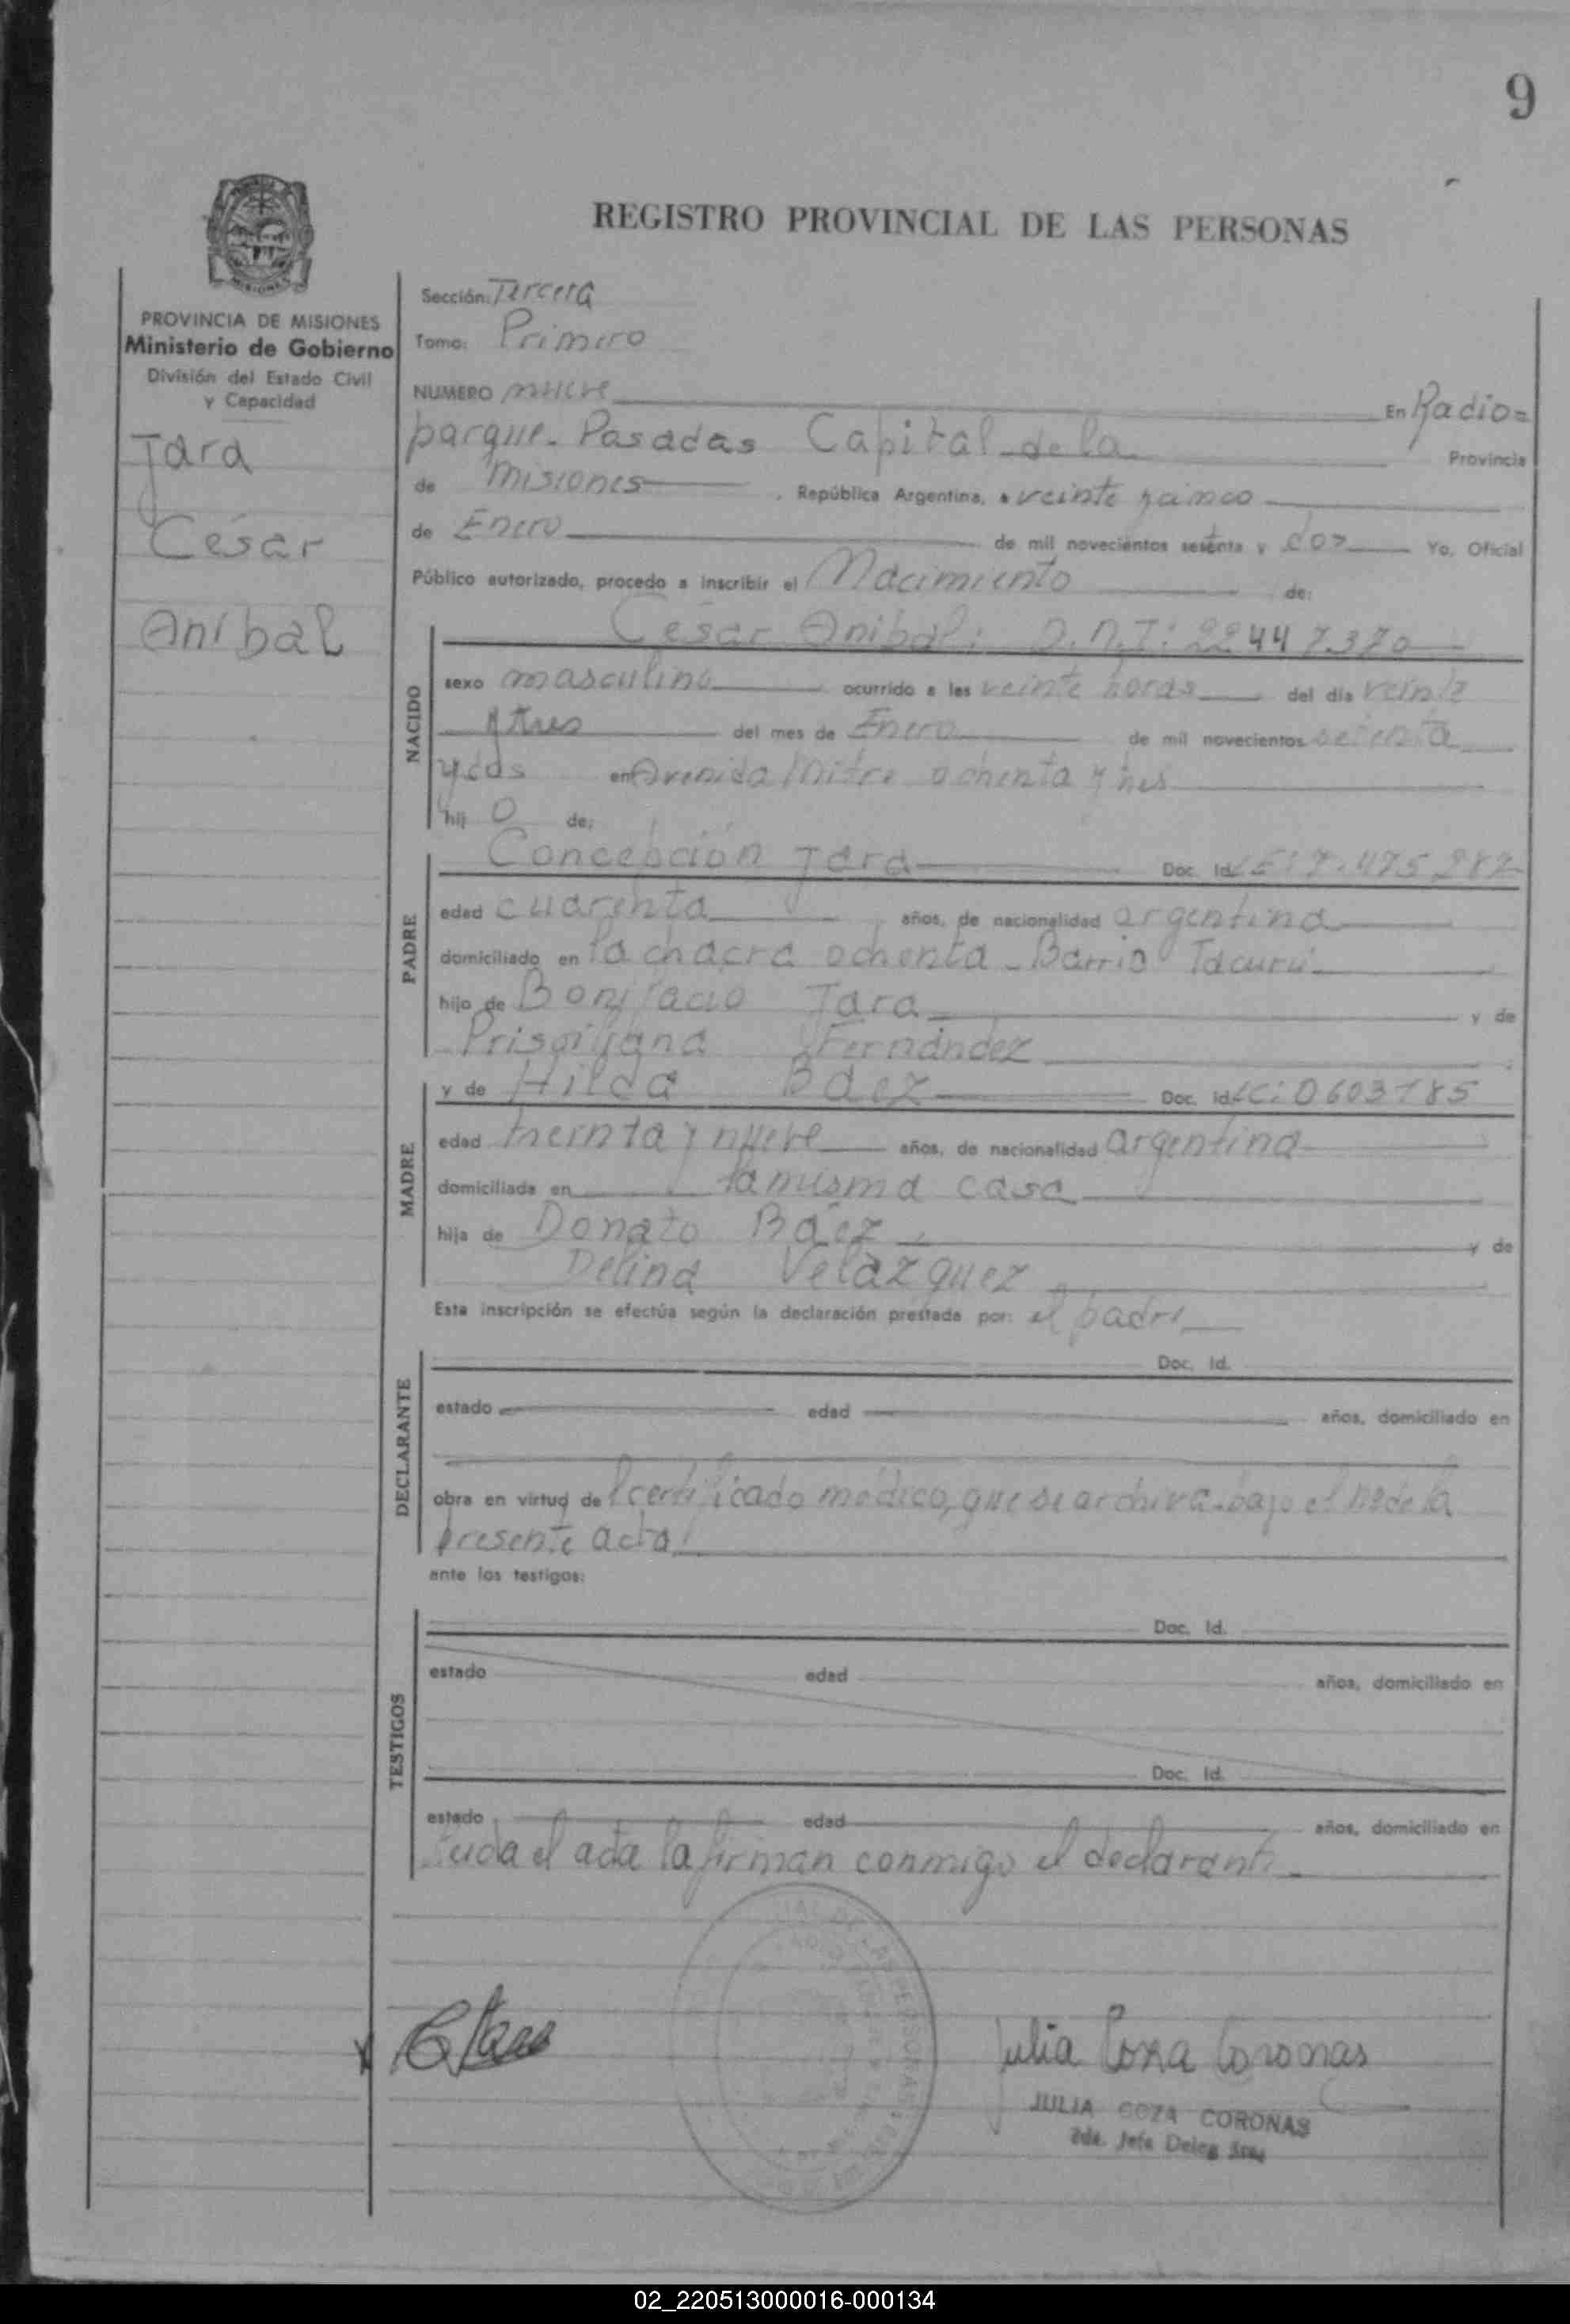 9
REGISTRO PROVINCIAL DE LAS PERSONAS
MISIONES
PROVINCIA DE MISIONES
Ministerio de Gobierno
División del Estado Civil
y Capacidad
Jara
César
Aníbal
Sección: Tercera
Tomo: Primero
NUMERO nueve En Radio=
parque - Posadas Capital de la Provincia
de Misiones , República Argentina, a veinte y cinco
de Enero de mil novecientos setenta y dos Yo, Oficial
Público autorizado, procedo a inscribir el Nacimiento de:
NACIDO
César Anibal: D.N.I: 22447370
sexo masculino ocurrido a las veinte horas del día veinte
y tres del mes de Enero de mil novecientos setenta
y dos en Avenida Mitre ochenta y tres
hij o de:
PADRE
Concepción Jara Doc. Id. LE: 7.475.287
edad cuarenta años, de nacionalidad argentina
domiciliado en la chacra ochenta - Barrio Tacurú
hijo de Bonifacio Jara y de
Fernández
MADRE
y de Hilda Báez Doc. Id. LC: 0603185
edad treinta y nueve años, de nacionalidad argentina
domiciliada en la misma casa
hija de Donato Báez y de
Delina Velázquez
Esta inscripción se efectúa según la declaración prestada por: el padre
DECLARANTE
Doc. Id.
estado edad años, domiciliado en
obra en virtud de l certificado médico, que se archiva bajo el Nº de la
presente acta
ante los testigos:
TESTIGOS
Doc. Id.
estado edad años, domiciliado en
Doc. Id.
estado edad años, domiciliado en
Leída el acta la firman conmigo el declarante
Julia Coza Coronas
JULIA COZA CORONAS
02_220513000016-000134